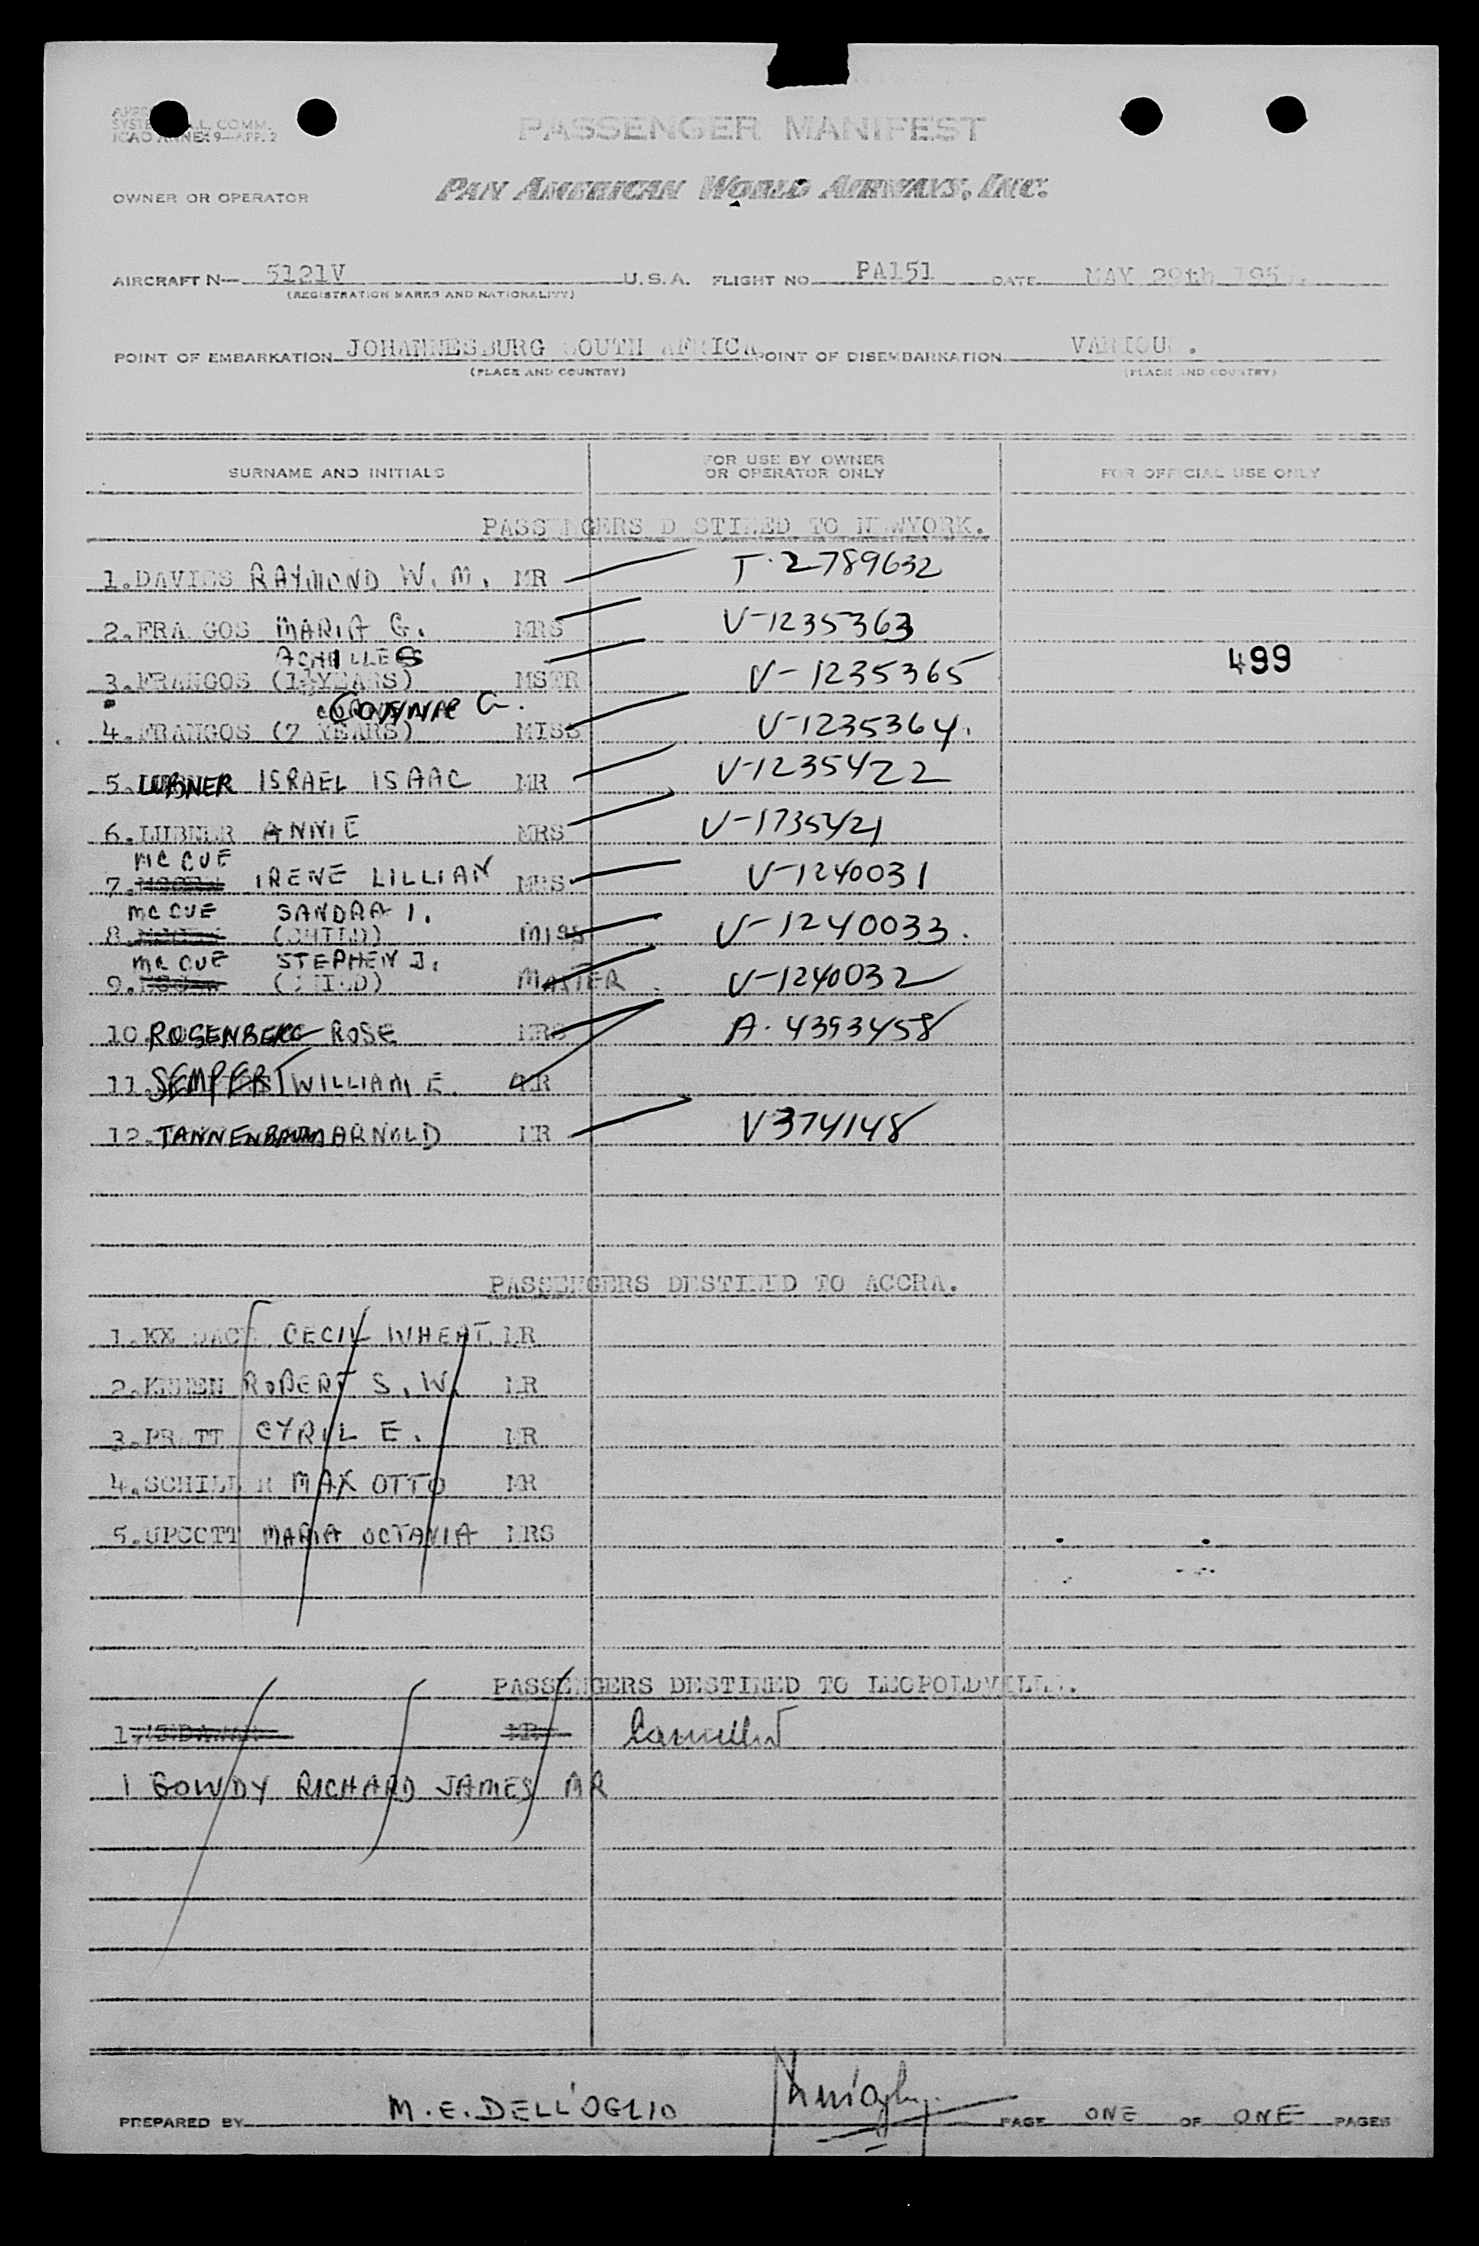 ICAO ANNEX 9—APP. 2
PASSENGER MANIFEST
OWNER OR OPERATOR PAN AMERICAN WORLD AIRWAYS, INC.
AIRCRAFT N— 5121V U.S.A. FLIGHT NO. PA151 DATE MAY 29th
(REGISTRATION MARKS AND NATIONALITY)
POINT OF EMBARKATION JOHANNESBURG SOUTH AFRICA POINT OF DISEMBARKATION VARIOUS.
(PLACE AND COUNTRY) (PLACE AND COUNTRY)
SURNAME AND INITIALS FOR USE BY OWNER OR OPERATOR ONLY FOR OFFICIAL USE ONLY
PASSENGERS DESTINED TO NEWYORK.
1. DAVIES RAYMOND W. M. MR T. 2789632
2. FRANGOS MARIA G. MRS V-1235363
ACHILLES
3. FRANGOS (1½YEARS) MSTR V-1235365 499
CONNIE G.
4. FRANGOS (7 YEARS) MISS V-1235364.
5. LUBNER ISRAEL ISAAC MR V-1235422
6. LUBNER ANNIE MRS V-1735421
MC CUE
7. IRENE LILLIAN MRS V-1240031
MC CUE SANDRA I.
8. (CHILD) MISS V-1240033.
MC CUE STEPHEN J.
9. (CHILD) MASTER V-1240032
10. ROSENBERG ROSE MRS A. 4393458
11. SEMPERT WILLIAM E. MR
12. TANNENBAUM ARNOLD MR V374148
PASSENGERS DESTINED TO ACCRA.
1. KX CECIL WHEAT. MR
2. ROBERT S. W. MR
3. PRATT CYRIL E. MR
4. SCHILLER MAX OTTO MR
5. UPCOTT MARIA OCTAVIA MRS
PASSENGERS DESTINED TO LEOPOLDVILLE.
1. MRS
1 GOWDY RICHARD JAMES MR
PREPARED BY M. E. DELL'OGLIO PAGE ONE OF ONE PAGES